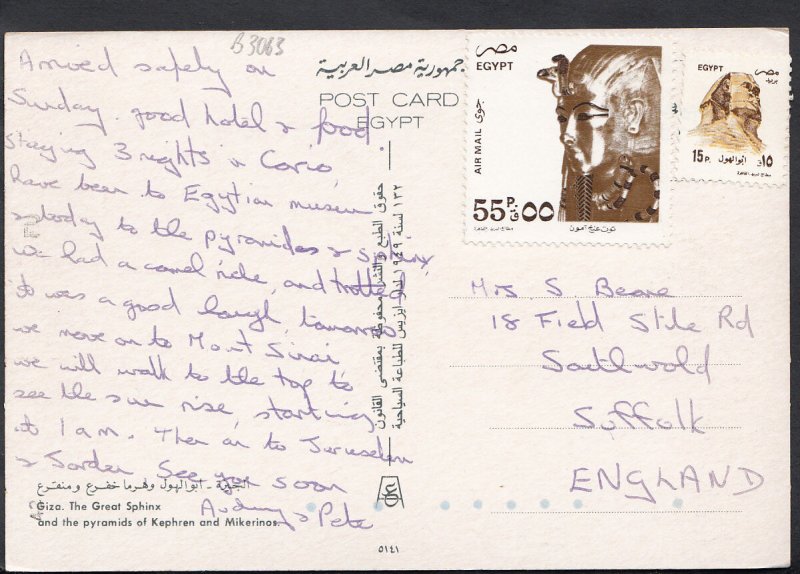 B3063
Arrived safely on
Sunday. good hotel & food
staying 3 nights in Cario
have been to Egytian museum
& today to the pyramides & Sphinx
we had a camel ride, and trotted
it was a good laugh, tomorrow
we move on to Mount Sinai
we will walk to the top to
see the sun rise, starting
at 1 am. Then on to Jerusalem
& Jordan See you soon
Audrey & Pete
الجيزة - أبو الهول وهرما خفرع و منقرع
Giza. The Great Sphinx
and the pyramids of Kephren and Mikerinos.
جمهورية مصر العربية
POST CARD
EGYPT
حقوق الطبع والنشر محفوظة بمقتضى القانون
١٣٢ لسنة ١٩٤٩ لدار ايزيس للطباعة السياحية
٥١٤١
مصر
EGYPT
AIR MAIL جوى
55P. ٥٥
توت عنخ آمون
EGYPT مصر
15P. ابو الهول ١٥
Mrs S Beare
18 Field Stile Rd
Southwold
Suffolk
ENGLAND